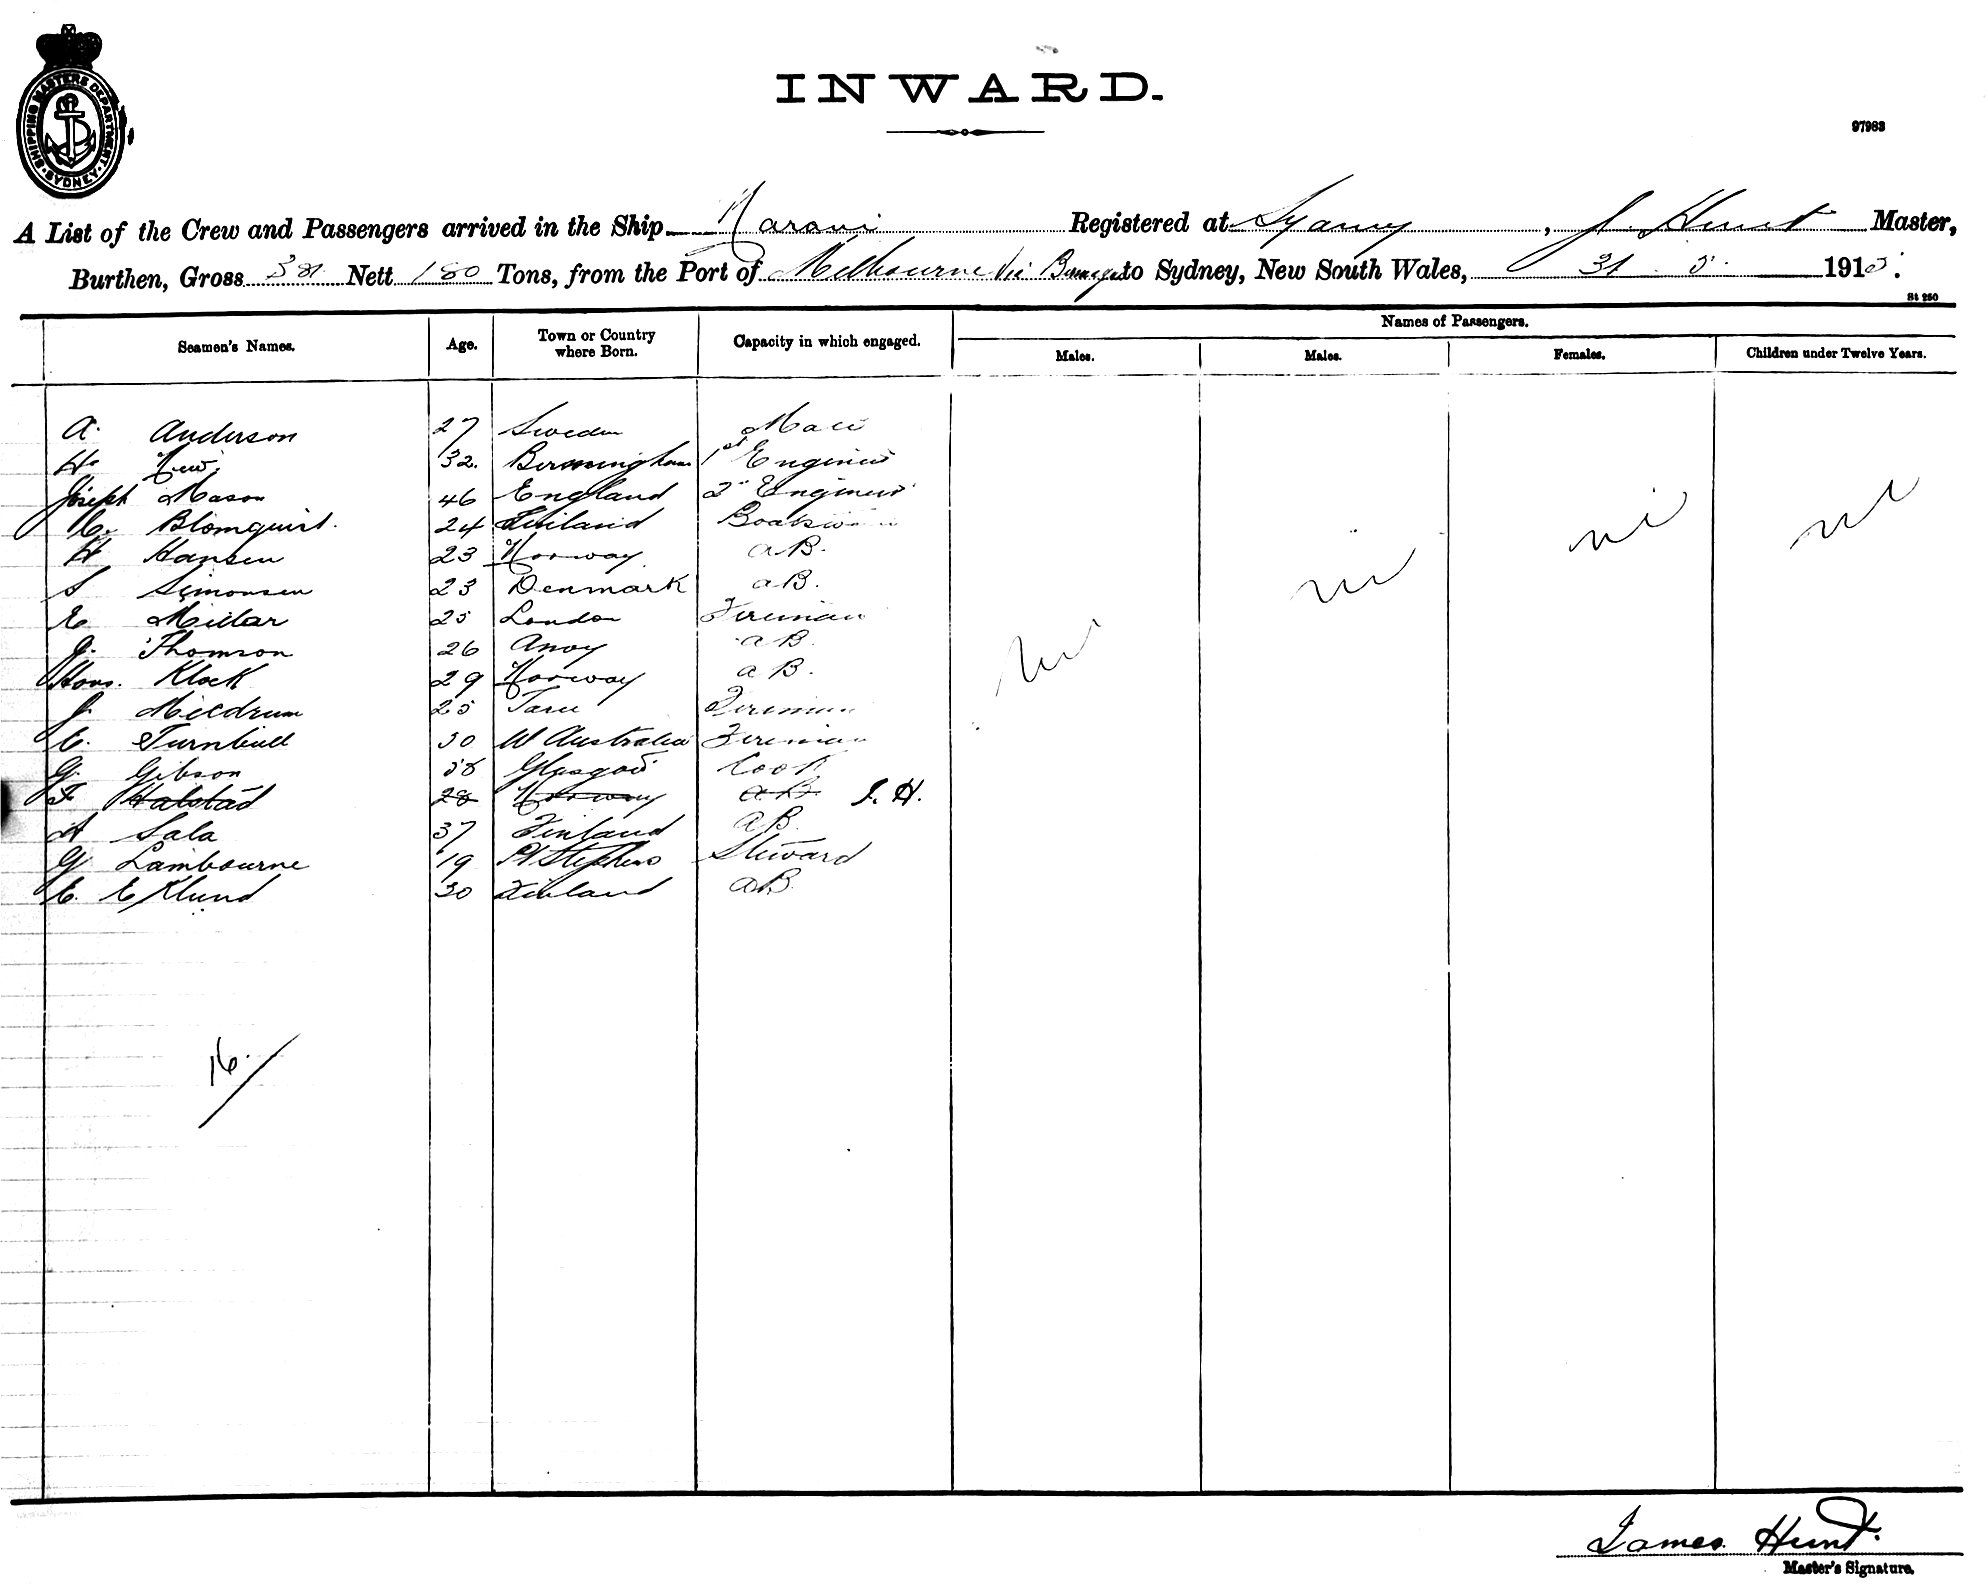 SHIPPING MASTERS DEPARTMENT
SYDNEY
INWARD.
97983
A List of the Crew and Passengers arrived in the Ship Narani Registered at Sydney, J. Hunt Master,
Burthen, Gross 381 Nett 180 Tons, from the Port of Melbourne via to Sydney, New South Wales, 31 5 1915.
St 250
Seamen's Names. Age. Town or Country where Born. Capacity in which engaged. Names of Passengers.
Males. Males. Females. Children under Twelve Years.
A. Anderson 27 Sweden Mate
H. New 32. Birmingham 1st Engineer
Joseph Mason 46 England 2nd Engineer
C. Blomquist. 24 Finland Boatswain
H Hansen 23 Norway AB.
S Simonsen 23 Denmark AB.
E. Millar 25 London Fireman
J. Thomson 26 AB.
Hans. Klock 29 Norway AB.
J. Meldrum 25 Taree Fireman
C. Turnbull 30 W Australia Fireman
G. Gibson 38 Glasgow Cook
F Halstad 28 Norway AB. J. H.
A Sala 37 Finland AB.
G Lambourne 19 Pt Stephens Steward
C. Eklund 30 Finland AB.
nil nil nil nil
16.
James Hunt.
Master's Signature.